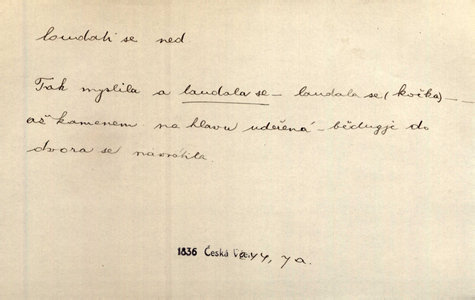 loudati se ned.
Tak myslila a laudala se – laudala se (kočka) –
až kamenem na hlavu udeřená – bědugjc do
dvora se navrátila.
1836 Česká 44, 7a.